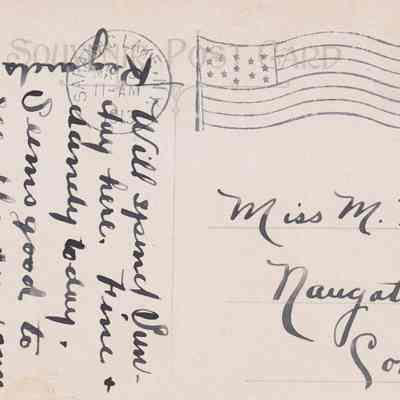 SOUVENIR POST CARD
LAKE
11-AM
Regards
Will spend Sun-
day here. Fine +
dandy today.
Seems good to
see
Miss M.
Naugat
Con